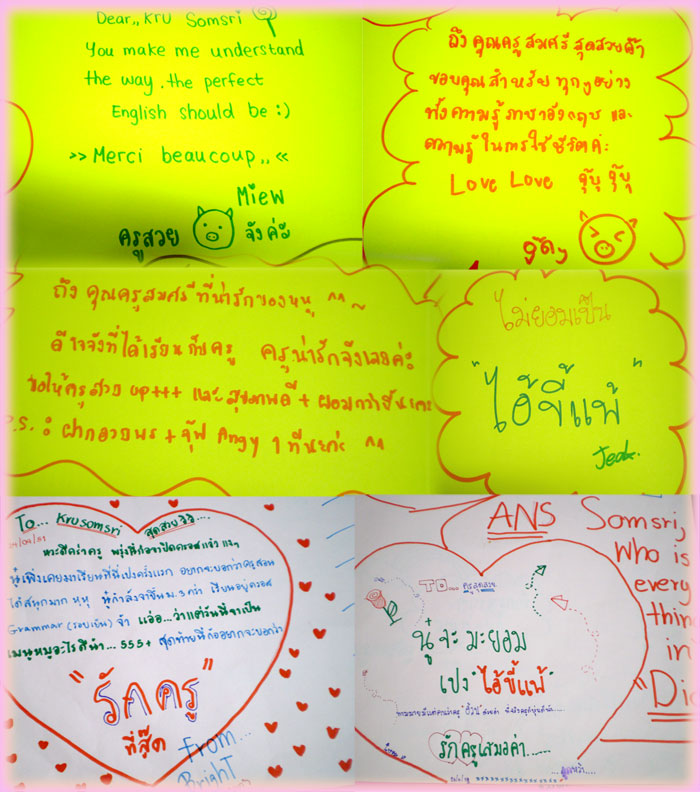 Dear,, Kru Somsri
You make me understand
the way. the perfect
English should be :)
>> Merci beaucoup,, <<
Miew
ครูสวย จังค่ะ
ถึง คุณครูสมศรี สุดสวยค้า
ขอบคุณสำหรับ ทุกๆอย่าง
ทั้งความรู้ภาษาอังกฤษ และ
ความรู้ในการใช้ชีวิตค่ะ
Love Love จุ๊บุ จุ๊บุ
ถึง คุณครูสมศรีที่น่ารักของหนู ^^~
ดีใจจังที่ได้เรียนกับครู ครูน่ารักจังเลยค่ะ
ขอให้ครูสวย up+++ และสุขภาพดี + ผอมกว่านี้นะคะ
P.S. : ฝากอวยพร + จุ๊ฟ Angy 1 ทีนะค่ะ ^^
ไม่ยอมเป็น
"ไอ้ขี้แพ้"
Jedk.
To... Krusomsri สุดสวยวิ้ว...
หวะดีคร่าครู พรุ่งนี้ก้อจาปิดคอสแร้ว แงๆ
นู๋เพิ่งเคยมาเรียนที่นี่เปงครั้งแรก อยากจะบอกว่าครูสอน
ได้สนุกมาก หุหุ นู๋กำลังจาขึ้นม.3 คร่า เรียนอยู่คอส
Grammar (รอบเย็น) จ้า แอ๋อ...ว่าแต่วันนี้จาเป็น
เมนูหมูอะไรดีน้า... 555+ สุดท้ายนี้ก้ออยากจะบอกว่า
"รักครู"
ที่สุ๊ด
From...
BrighT
ANS Somsri,
Who is
every
thin
in
"Dic
TO....
นู๋จะมะยอม
เปง "ไอ้ขี้แพ้"
รักครูเสมอค่า......